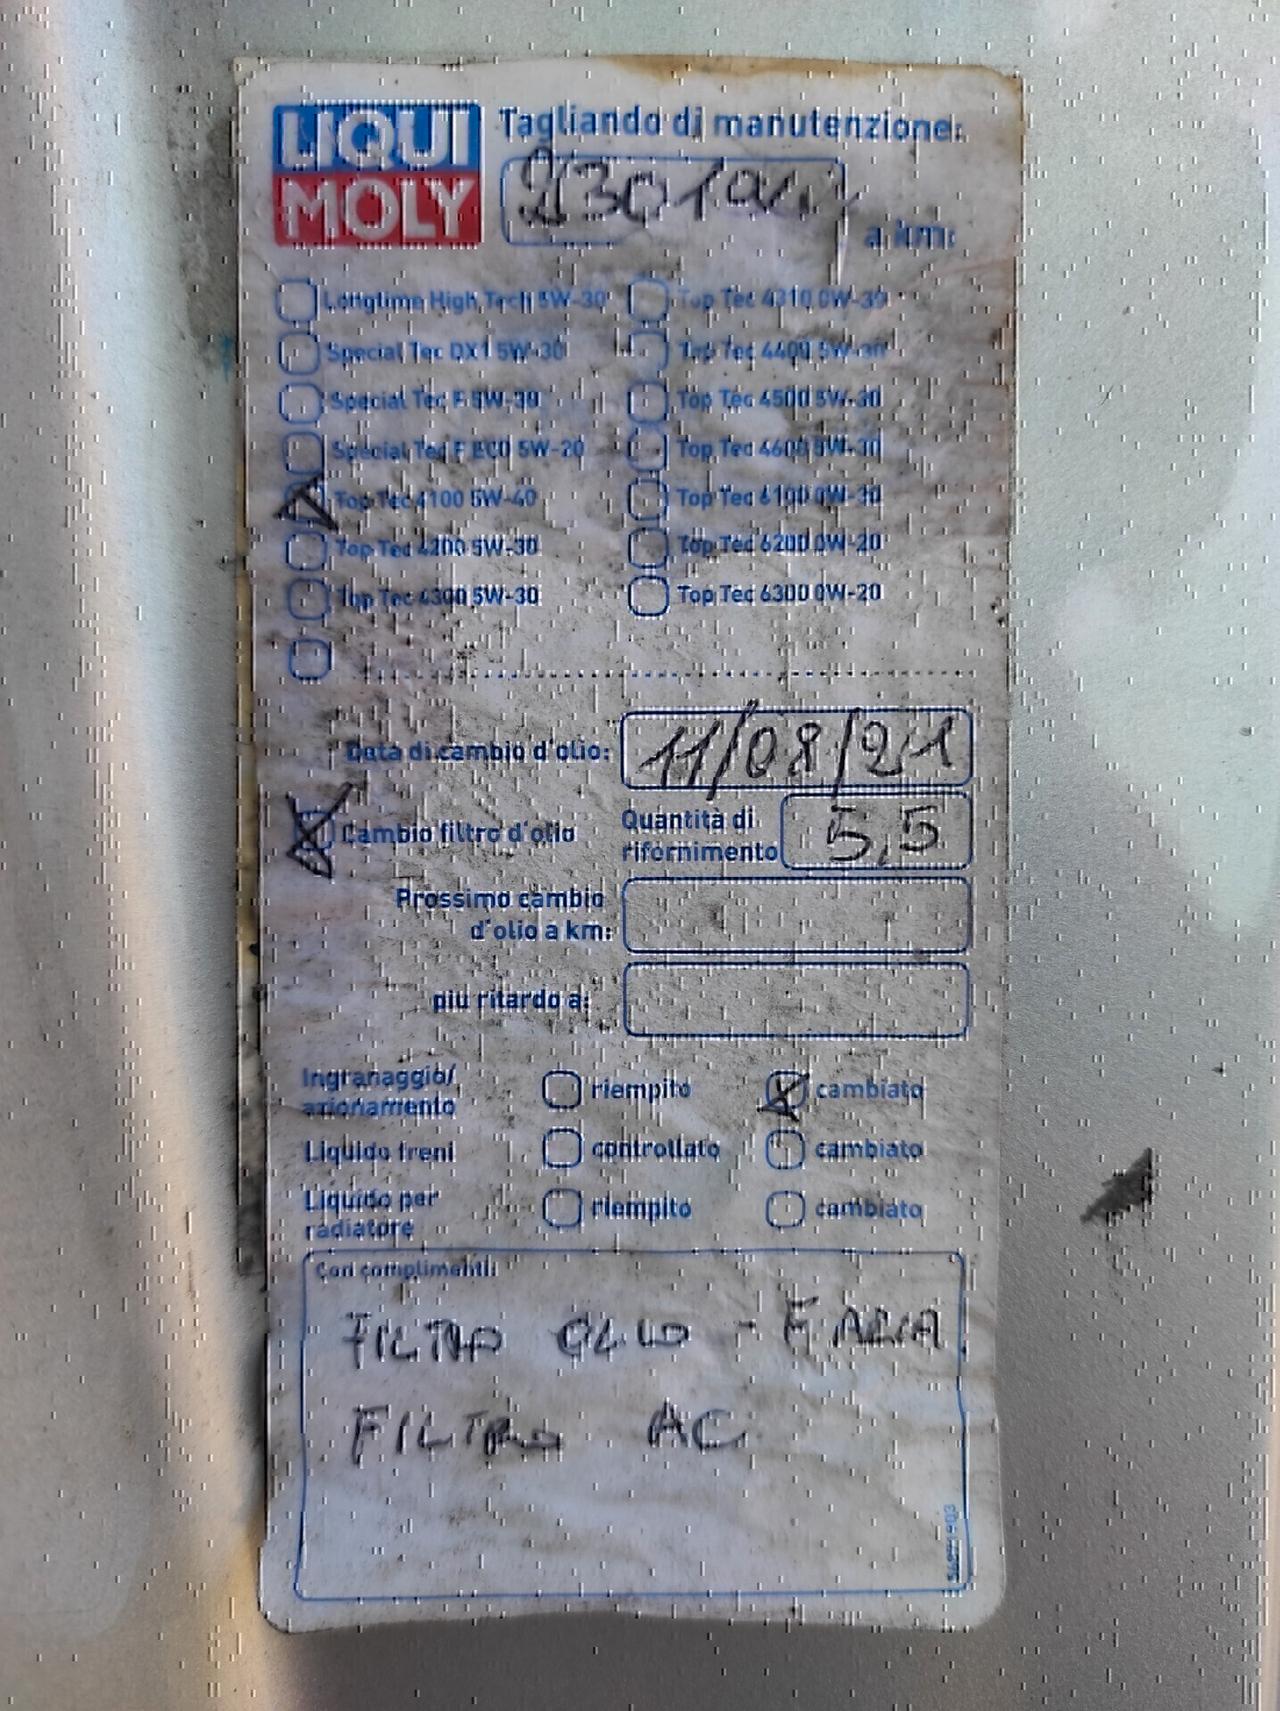 LIQUI MOLY
Tagliando di manutenzione:
a km:
Longtime High Tech 5W-30
Top Tec 4310 0W-30
Special Tec DX1 5W-30
Top Tec 4400 5W-30
Special Tec F 5W-30
Top Tec 4500 5W-30
Special Tec F ECO 5W-20
Top Tec 4600 5W-30
Top Tec 4100 5W-40
Top Tec 6100 0W-30
Top Tec 4200 5W-30
Top Tec 6200 0W-20
Top Tec 4300 5W-30
Top Tec 6300 0W-20
Data di cambio d'olio: 11/08/21
Cambio filtro d'olio
Quantità di rifornimento 5,5
Prossimo cambio
d'olio a km:
piu ritardo a:
Ingranaggio/
azionamento
riempito
cambiato
Liquido freni
controllato
cambiato
Liquido per
radiatore
riempito
cambiato
Con complimenti:
FILTRO OLIO - F ARIA
FILTRO AC